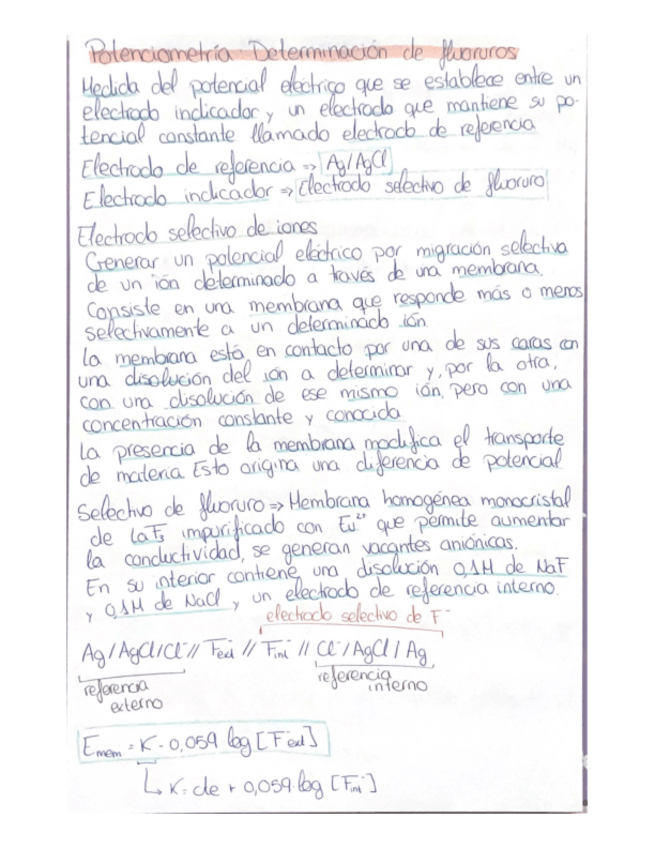 Potenciometría. Determinación de fluoruros
Medida del potencial eléctrico que se establece entre un
electrodo indicador y un electrodo que mantiene su po-
tencial constante llamado electrodo de referencia
Electrodo de referencia => Ag/AgCl
Electrodo indicador => Electrodo selectivo de fluoruro
Electrodo selectivo de iones
Generar un potencial eléctrico por migración selectiva
de un ión determinado a través de una membrana.
Consiste en una membrana que responde más o menos
selectivamente a un determinado ión
La membrana está en contacto por una de sus caras con
una disolución del ión a determinar y, por la otra,
con una disolución de ese mismo ión, pero con una
concentración constante y conocida
La presencia de la membrana modifica el transporte
de materia. Esto origina una diferencia de potencial
Selectivo de fluoruro => Membrana homogénea monocristal
de LaF₃ impurificado con Eu²⁺ que permite aumentar
la conductividad, se generan vacantes aniónicas.
En su interior contiene una disolución 0,1M de NaF
y 0,1M de NaCl y un electrodo de referencia interno.
electrodo selectivo de F⁻
Ag/AgCl/Cl⁻// F⁻ext // F⁻int // Cl⁻/AgCl/Ag
referencia externo
referencia interno
Emem = K - 0,059 log [F⁻ext]
↳ K = cte + 0,059 log [F⁻int]